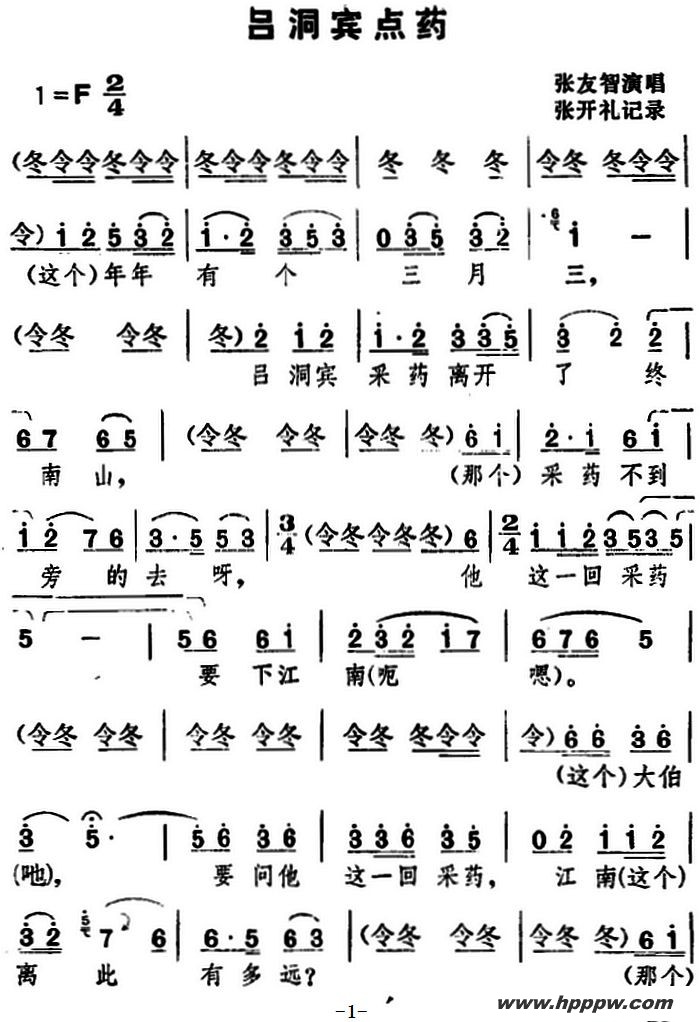 吕洞宾点药
1=F 2/4
张友智演唱
张开礼记录
(冬令令冬令令 | 冬令令冬令令 | 冬 冬 冬 | 令冬 冬令令 |
令) 1 2 5 3 2 | 1·2 3 5 3 | 0 3 5 3 2 | 6 1 — |
(这个)年年 有 个 三 月 三,
(令冬 令冬 | 冬) 2 1 2 | 1·2 3 3 5 | 3 2 2 |
吕 洞宾 采 药 离开 了 终
6 7 6 5 | (令冬 令冬 | 令冬 冬) 6 1 | 2·1 6 1 |
南 山, (那个) 采 药 不到
1 2 7 6 | 3·5 5 3 | 3/4 (令冬令冬冬) 6 | 2/4 1 1 2 3 5 3 5 |
旁 的 去 呀, 他 这一回 采药
5 — | 5 6 6 1 | 2 3 2 1 7 | 6 7 6 5 |
要 下江 南(呃 嗯)。
(令冬 令冬 | 令冬 令冬 | 令冬 冬令令 | 令) 6 6 3 6 |
(这个)大伯
3 5· | 5 6 3 6 | 3 3 6 3 5 | 0 2 1 1 2 |
(吔), 要 问他 这一回 采药, 江 南(这个)
3 2 5 7 6 | 6·5 6 3 | (令冬 令冬 | 令冬 冬) 6 1 |
离 此 有 多 远? (那个)
www.hpppw.com
-1-